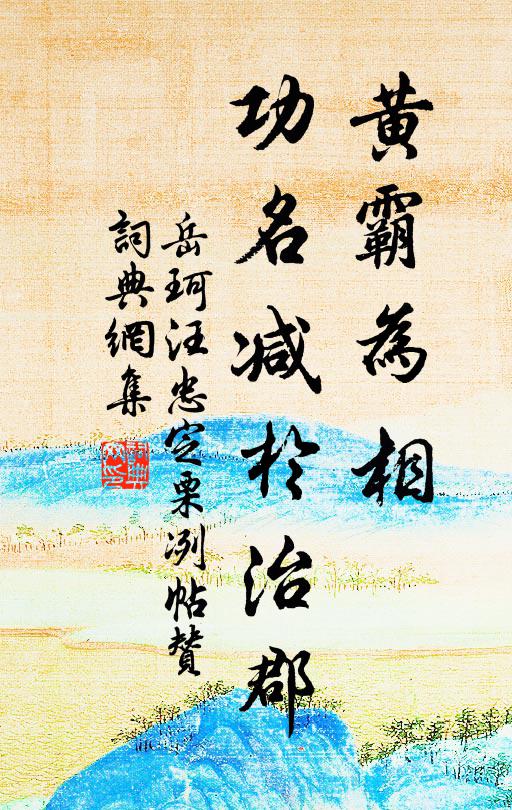 黃霸為相
功名減於治郡
岳珂汪忠定栗冽帖贊
詞典網集